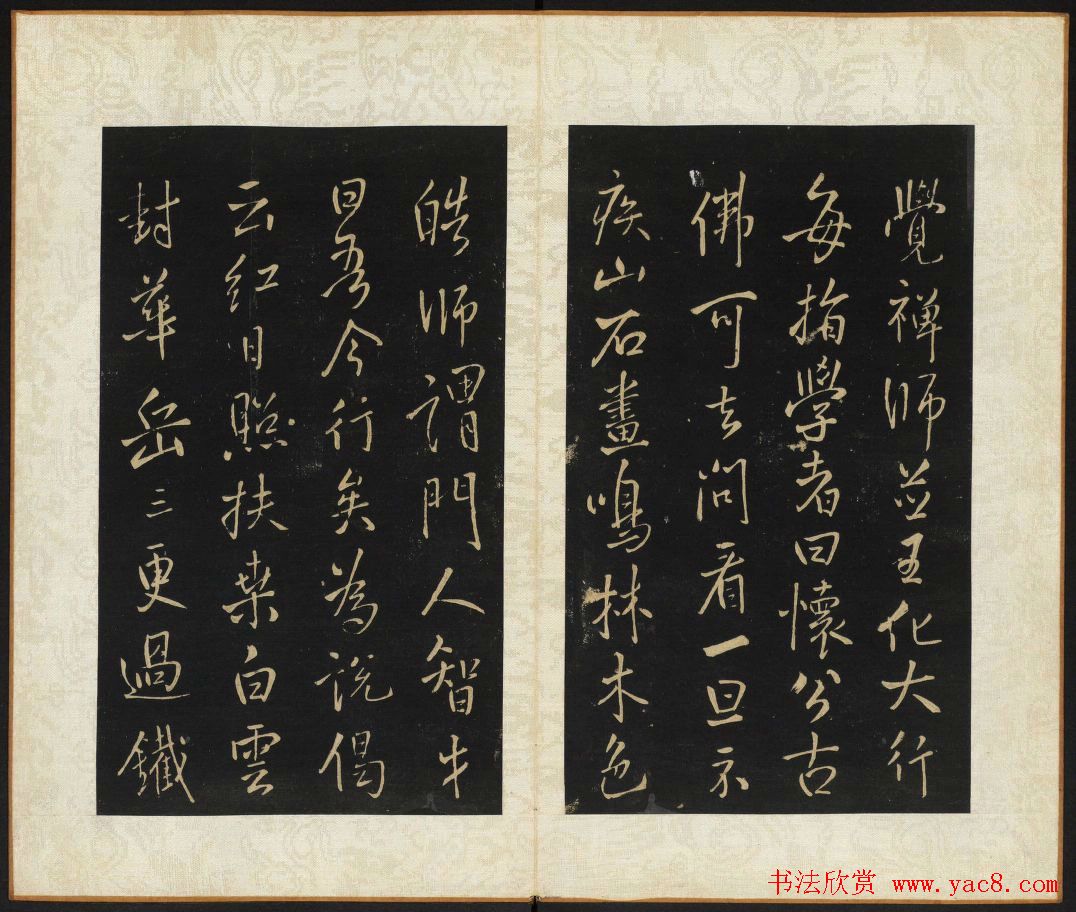 覺禅師並王化大行
每指學者曰懷公古
佛可去问看一旦示
疾山石畫鳴林木色
皓师謂門人智才
曰吾今行矣為說偈
云红日照扶桒白雲
封華岳三更過鐵
书法欣赏 www.yac8.com